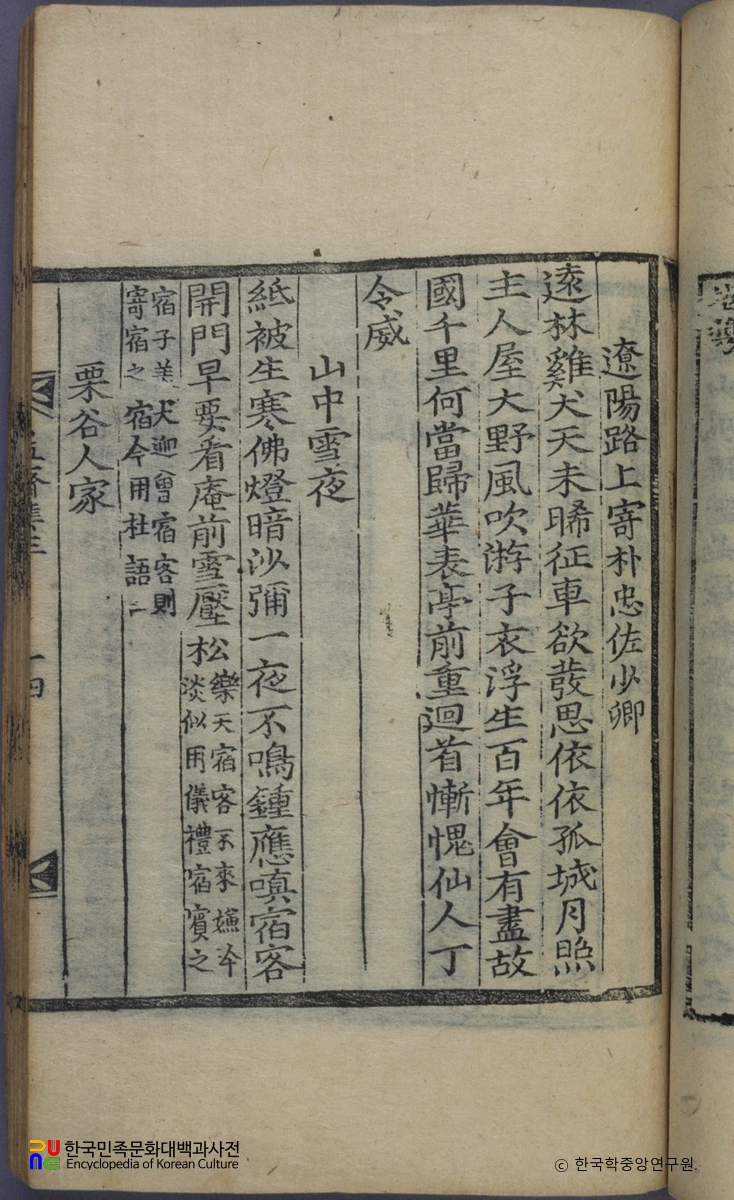 遼陽路上寄朴忠佐少卿
遠林雞犬天未晞征車欲發思依依孤城月照
主人屋大野風吹游子衣浮生百年會有盡故
國千里何當歸華表亭前重迴首慚愧仙人丁
令威
山中雪夜
紙被生寒佛燈暗沙彌一夜不鳴鍾應嗔宿客
開門早要看庵前雪壓松
樂天宿客不來嫌冷
淡似用儀禮宿賓之
宿子美犬迎曾宿客則
寄宿之宿今用杜語
栗谷人家
한국민족문화대백과사전
Encyclopedia of Korean Culture
ⓒ 한국학중앙연구원.